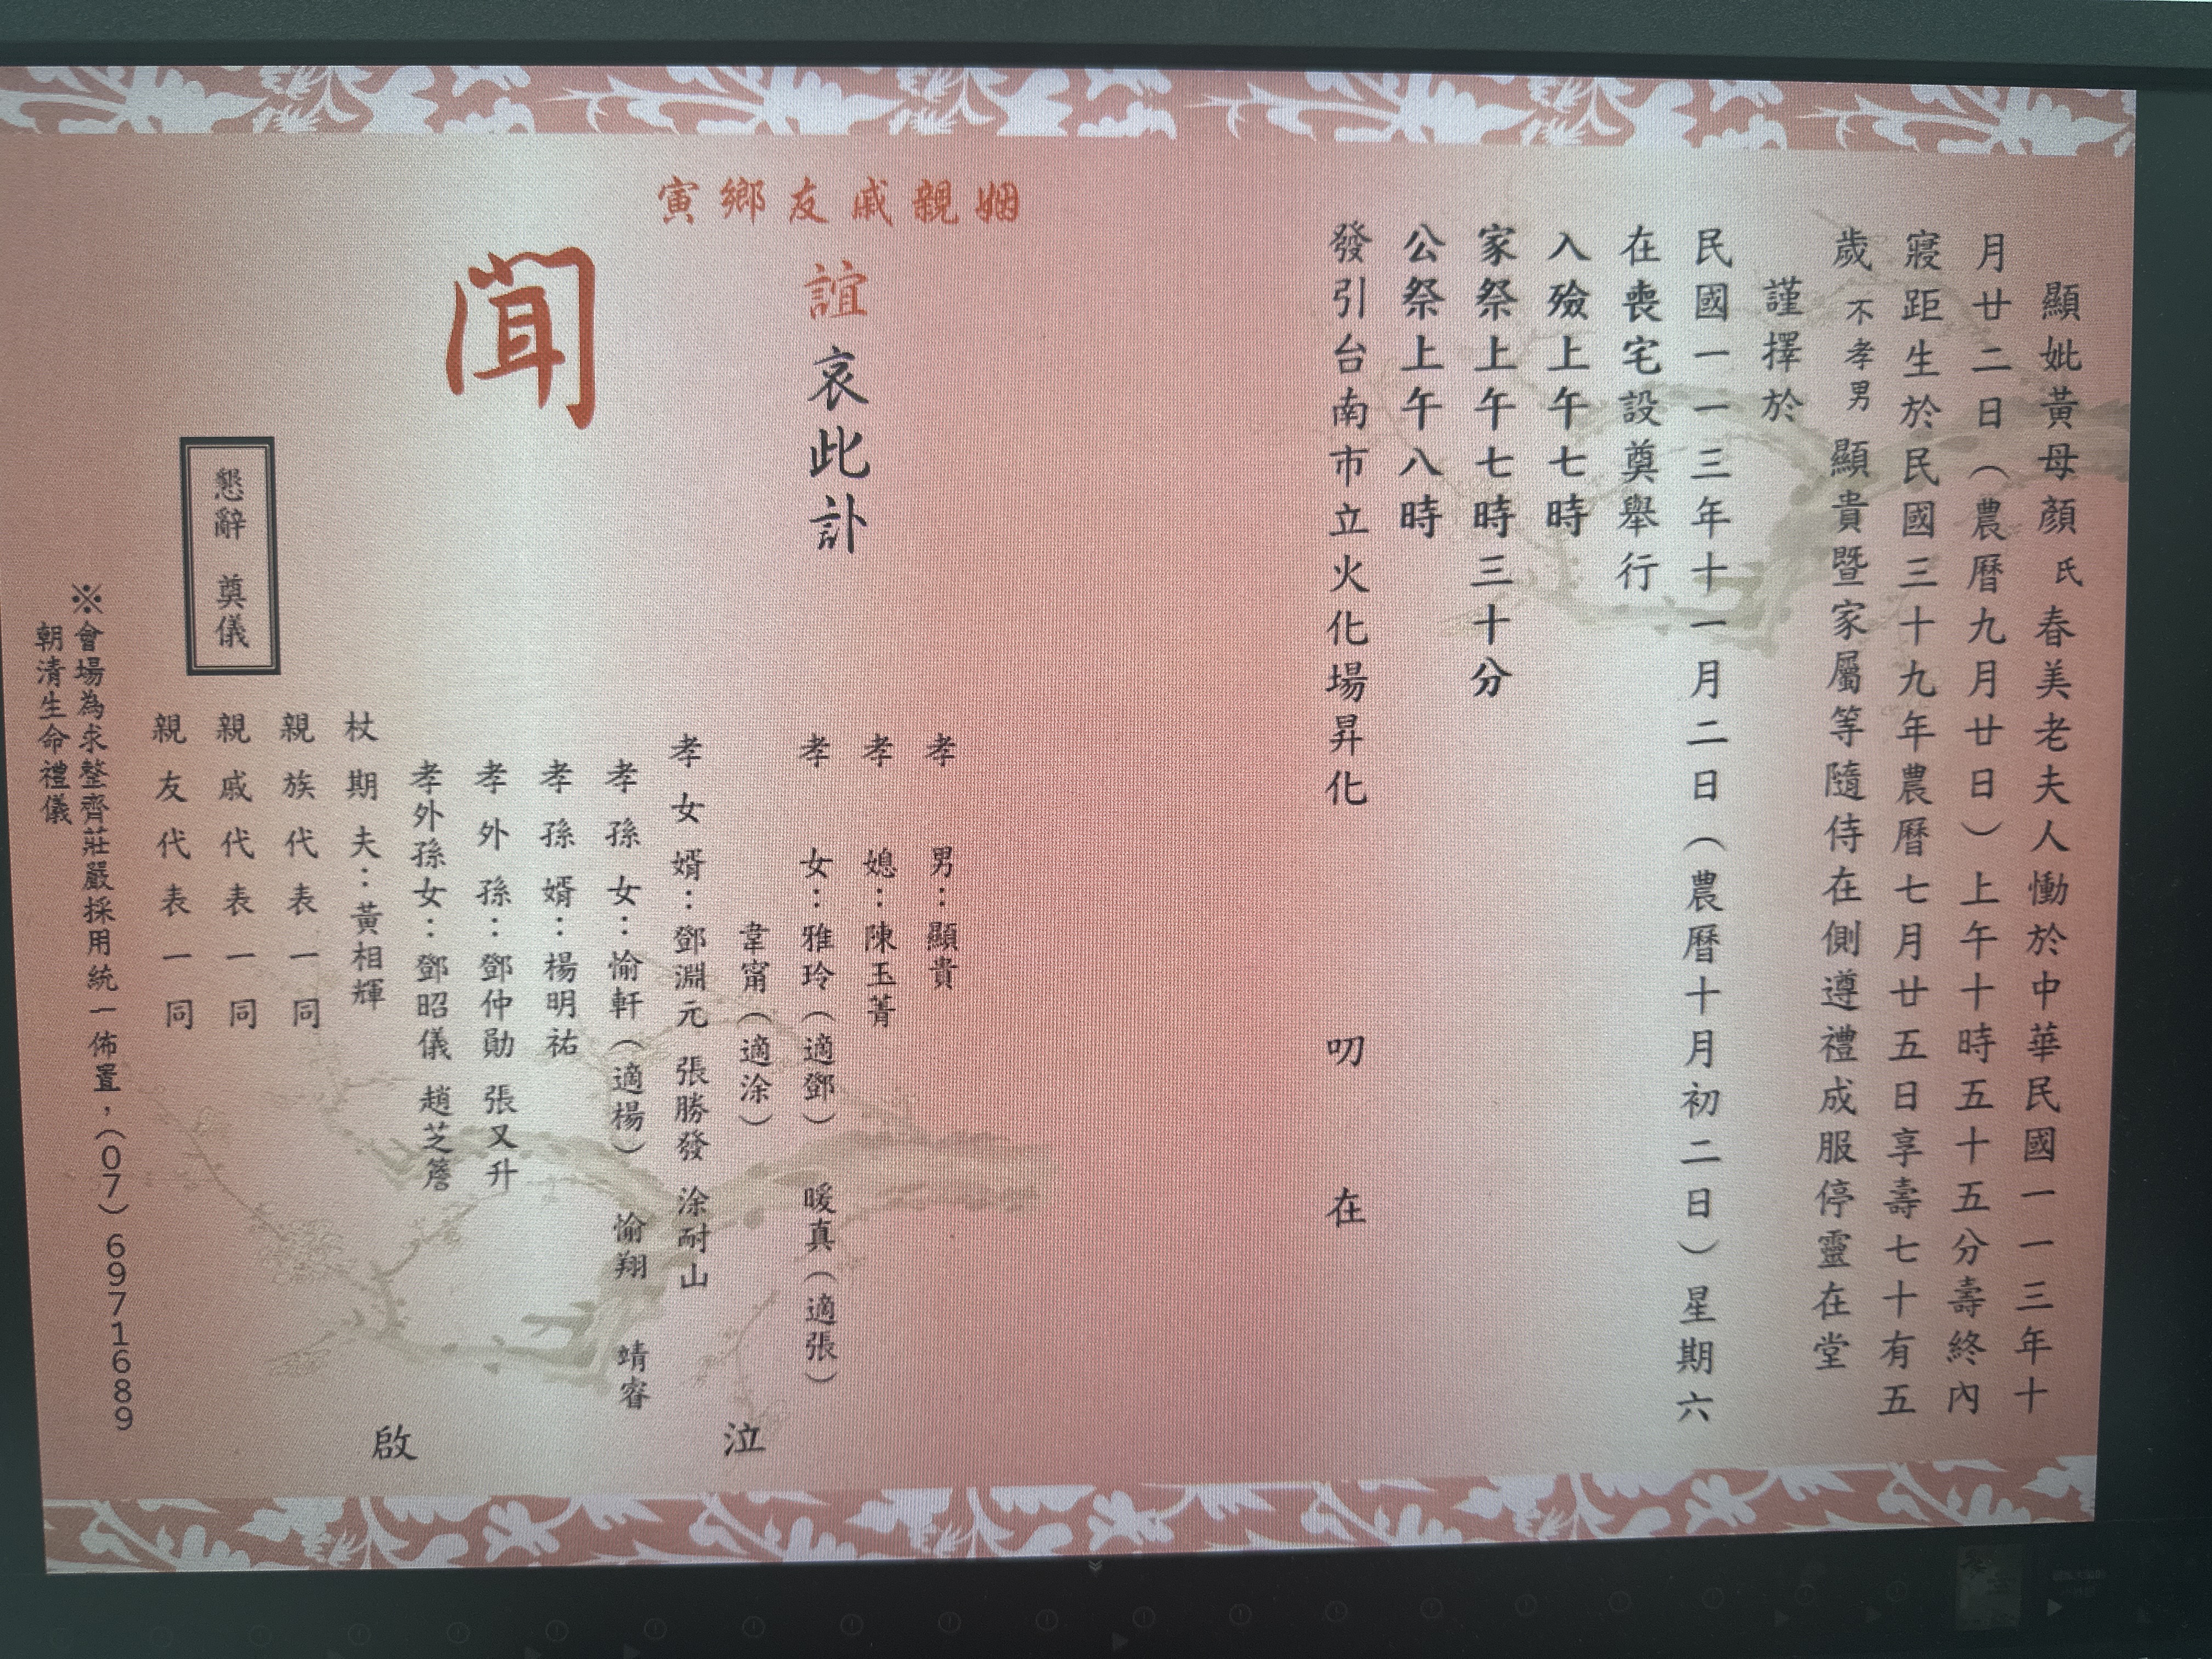 顯妣黃母顏氏春美老夫人慟於中華民國一一三年十
月廿二日（農曆九月廿日）上午十時五十五分壽終內
寢距生於民國三十九年農曆七月廿五日享壽七十有五
歲不孝男顯貴暨家屬等隨侍在側遵禮成服停靈在堂
謹擇於
民國一一三年十一月二日（農曆十月初二日）星期六
在喪宅設奠舉行
入殮上午七時
家祭上午七時三十分
公祭上午八時
發引台南市立火化場昇化 叨 在
姻親戚友鄉寅
誼哀此訃
聞
孝男：顯貴
孝媳：陳玉菁
孝女：雅玲（適鄧） 暖真（適張）
韋甯（適涂）
孝女婿：鄧淵元 張勝發 涂耐山
孝孫女：愉軒（適楊） 愉翔 靖睿
孝孫婿：楊明祐
孝外孫：鄧仲勛 張又升
孝外孫女：鄧昭儀 趙芝簷
杖期夫：黃相輝
親族代表一同
親戚代表一同
親友代表一同
泣
啟
懇辭 奠儀
※會場為求整齊莊嚴採用統一佈置，（07）6971689
朝清生命禮儀